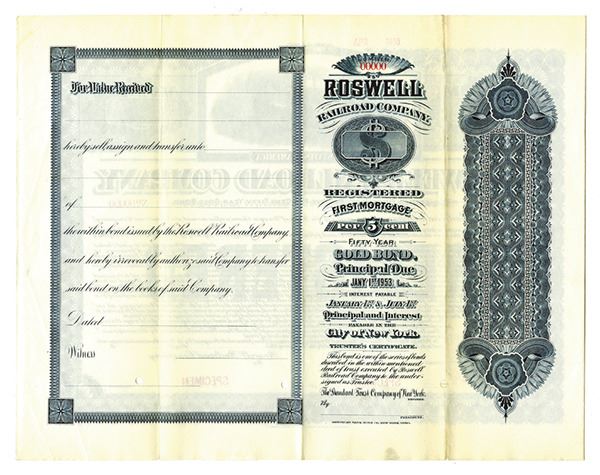 For Value Received
hereby sell, assign and transfer unto
of
the within bond issued by the Roswell Railroad Company
and hereby irrevocably authorize said Company to transfer
said bond on the books of said Company.
Dated
Witness
SPECIMEN
00000
ROSWELL
RAILROAD COMPANY
$
REGISTERED
FIRST MORTGAGE
PER 5 CENT
FIFTY YEAR
GOLD BOND,
Principal Due
JANY 1ST 1953.
INTEREST PAYABLE
JANUARY 1ST & JULY 1ST
Principal and Interest
PAYABLE IN THE
City of New York.
TRUSTEE'S CERTIFICATE.
This bond is one of the series of bonds
described in the within mentioned
deed of trust executed by Roswell
Railroad Company to the under-
signed as Trustee.
The Standard Trust Company of New York,
TRUSTEE.
By
PRESIDENT.